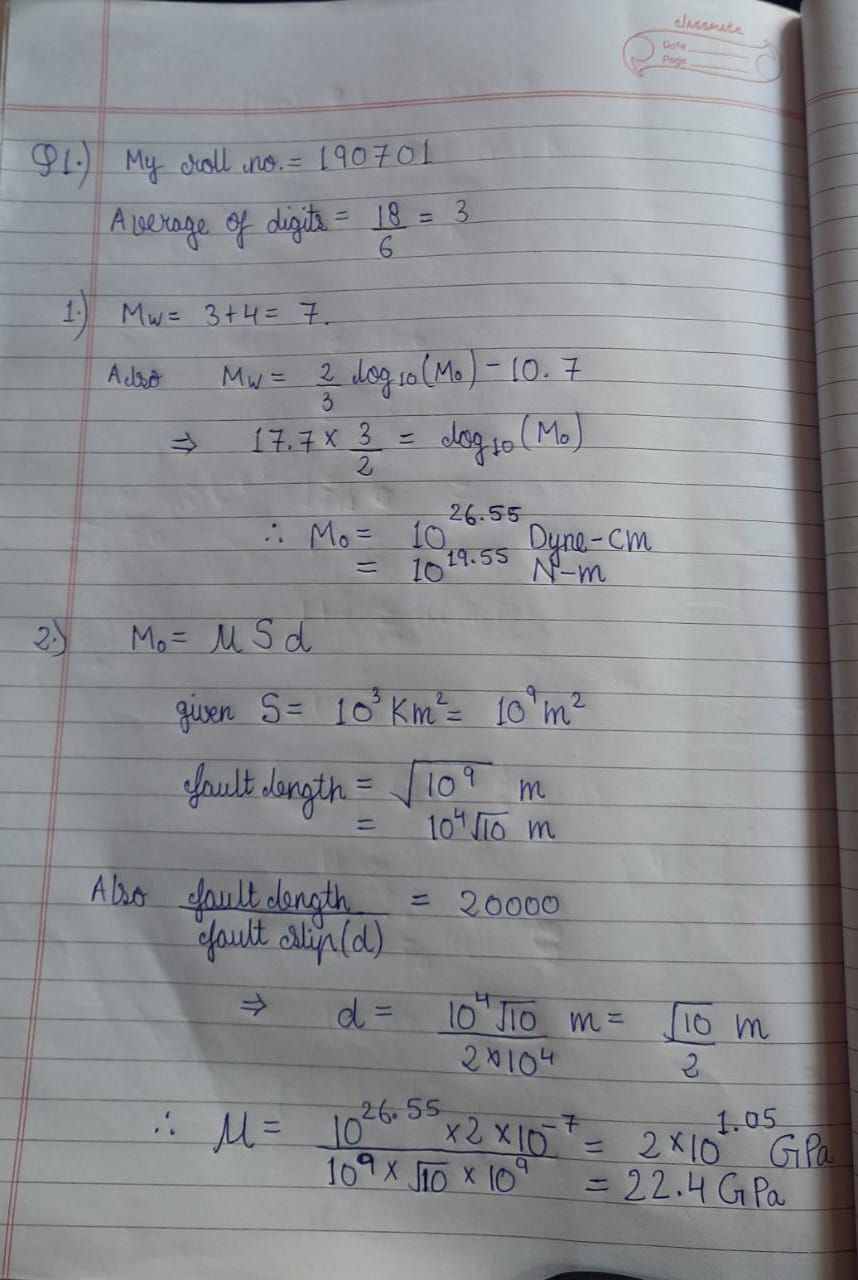 classmate
Date
Page
Q1.) My roll no. = 190701
Average of digits = 18/6 = 3
1.) Mw = 3+4 = 7.
Also Mw = 2/3 log₁₀(M₀) - 10.7
⇒ 17.7 × 3/2 = log₁₀(M₀)
∴ M₀ = 10^26.55 Dyne-cm
= 10^19.55 N-m
2.) M₀ = μ S d
given S = 10³ Km² = 10⁹ m²
fault length = √10⁹ m
= 10⁴√10 m
Also fault length / fault slip (d) = 20000
⇒ d = 10⁴√10 / 2×10⁴ m = √10/2 m
∴ μ = 10^26.55 × 2 × 10^-7 / 10⁹ × √10 × 10⁹ = 2×10^1.05 GPa
= 22.4 GPa